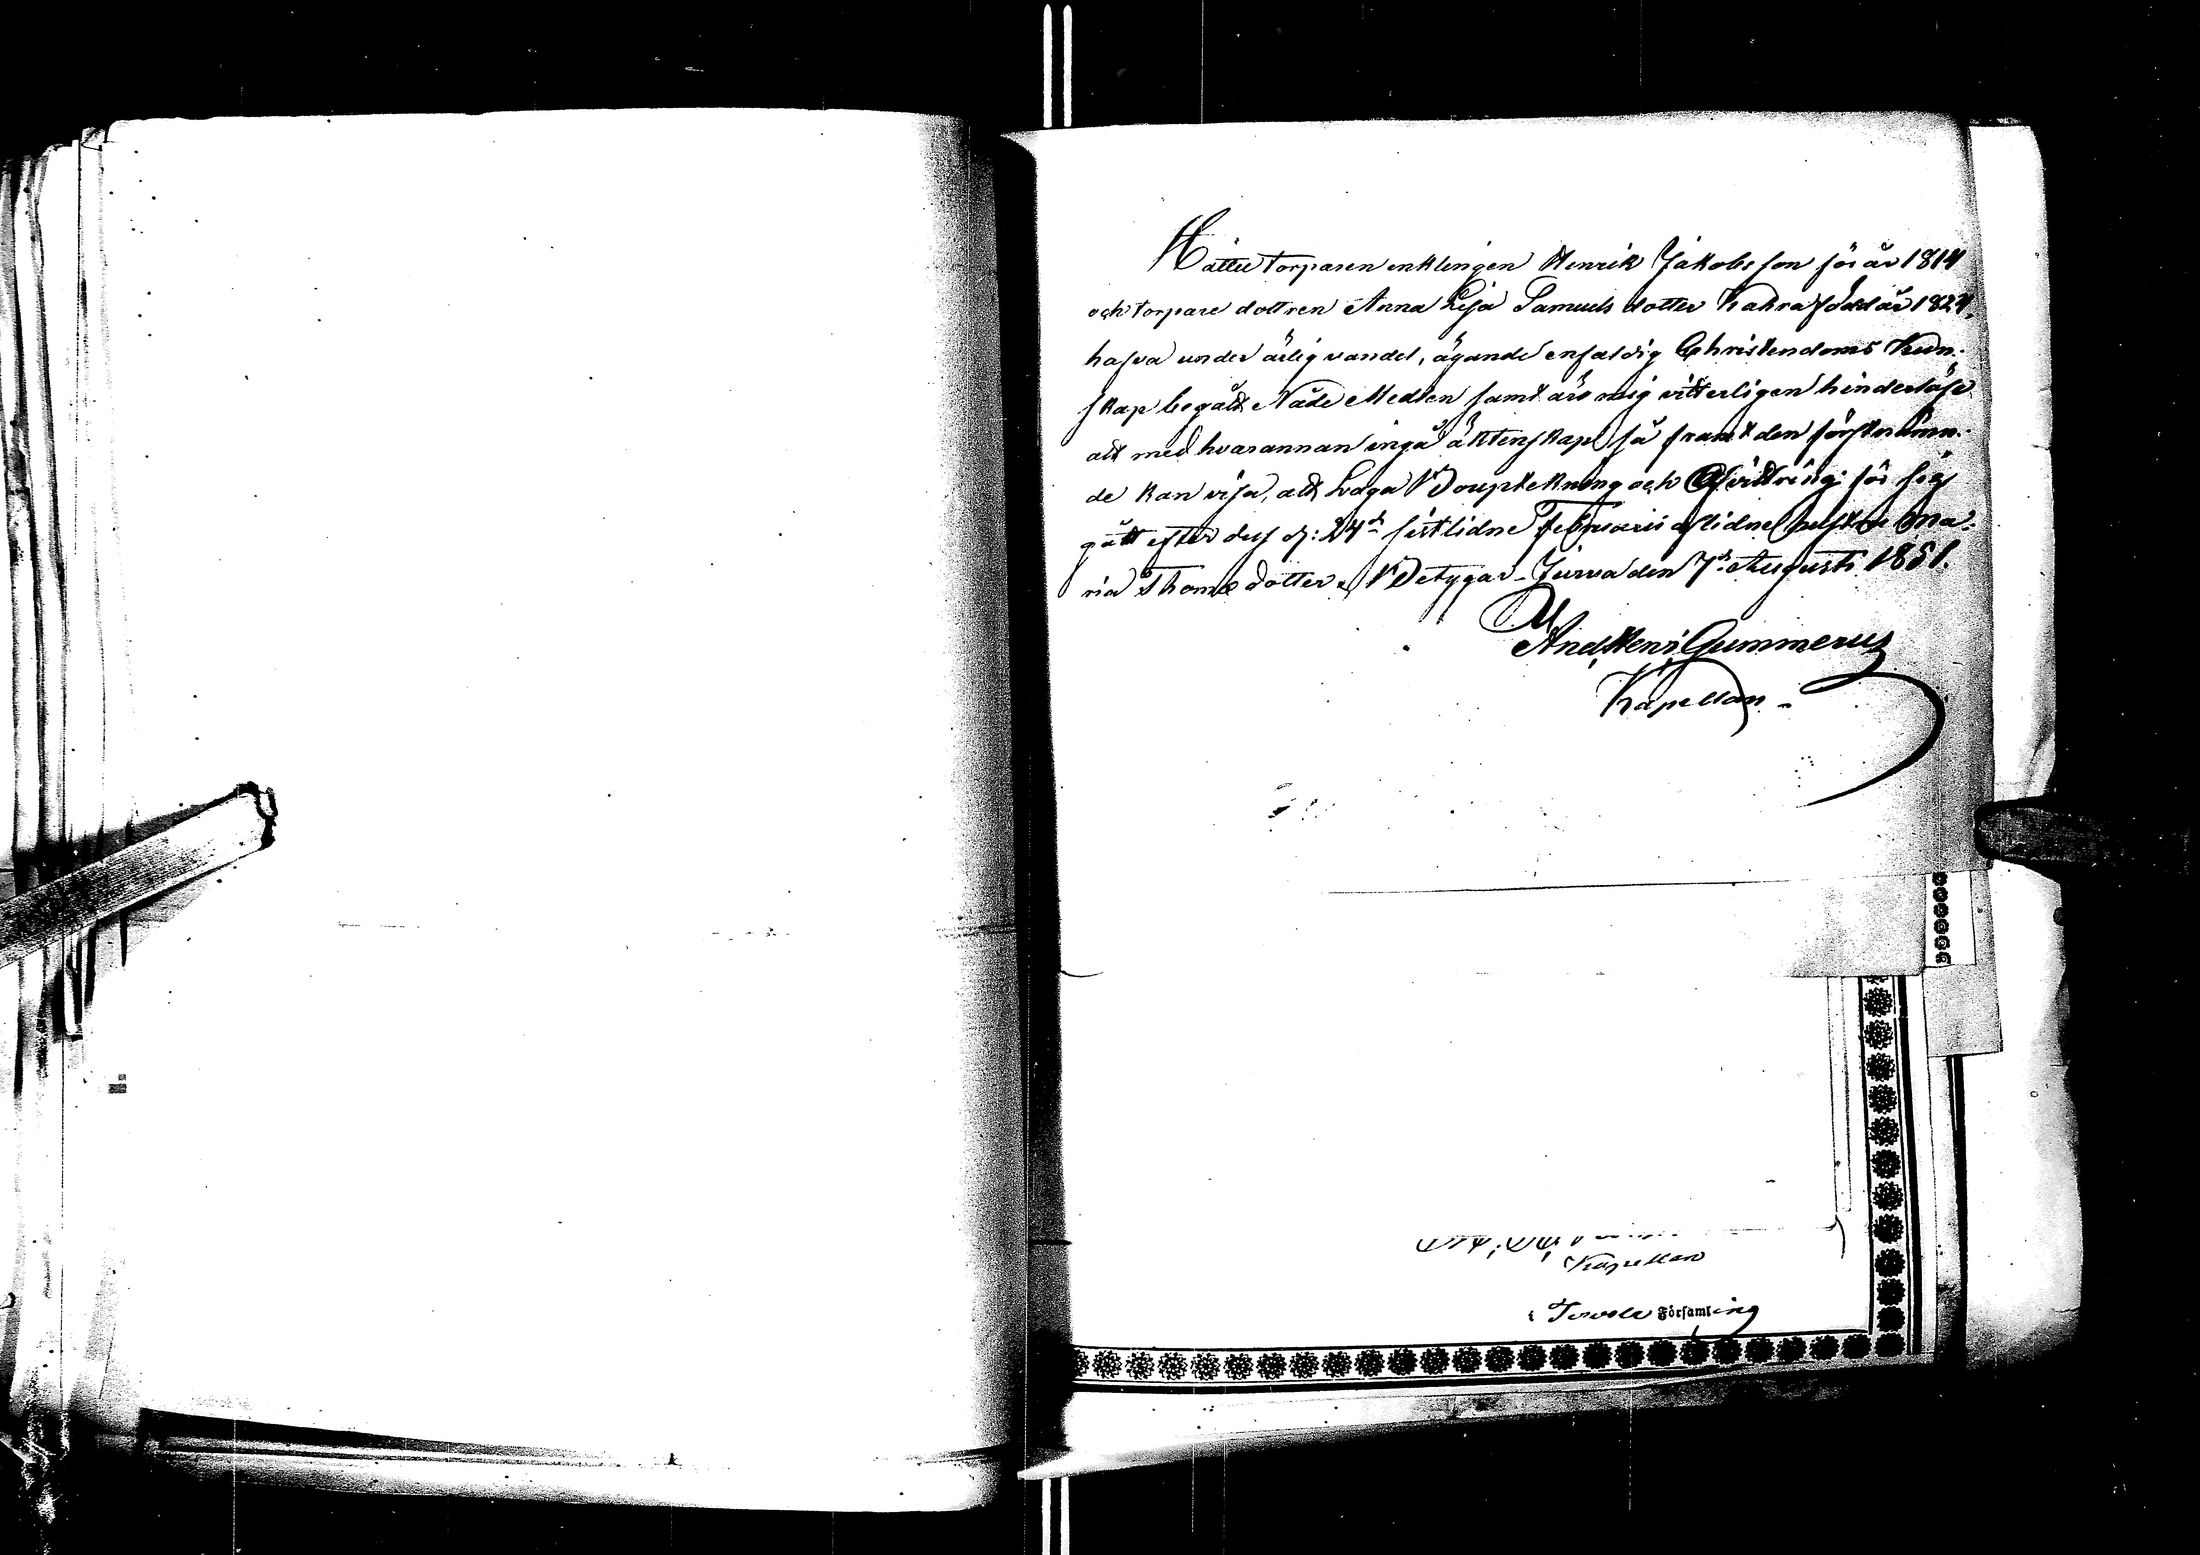 Hätter torparen enklingen Henrik Jakobsson för år 1814
och torpare dottren Anna Lisa Samuels dotter Kahra född år 1824,
hafva under ärlig vandel, ägande enfaldig Christendoms Kun-
skap begått Nåde Medlen samt äro mig vitterligen hinderlöse
att med hvarannan ingå äktenskap så framt den förstnämn-
de kan visa, att Laga Bouptekning och Afvittring för sig
gått efter dess d: 24de sistlidne Februarii aflidne hustru Ma-
ria Thomæ dotter, Betygar Jurva den 7de Augusti 1851.
And. Henr. Gummerus
Kapellan
Kapellan
i Församling